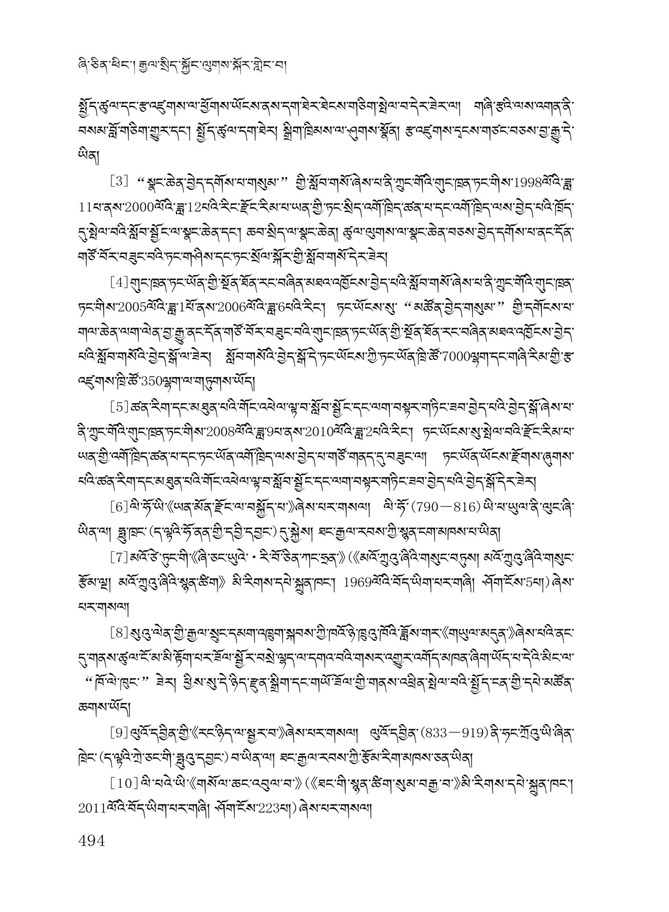 ཞི་ཅིན་ཕིང་། རྒྱལ་སྲིད་སྐྱོང་ལུགས་སྐོར་གླེང་བ།
སྤྱོད་ཚུལ་དང་རྩ་འཛུགས་ལ་ཕྱོགས་ཡོངས་ནས་དག་ཐེར་ཐེངས་གཅིག་སྤེལ་བ་དེར་ཟེར་ལ། གཞི་རྩའི་ལས་འགན་ནི་
བསམ་བློ་གཅིག་གྱུར་དང་། སྤྱོད་ཚུལ་དག་ཐེར། སྒྲིག་ཁྲིམས་ལ་ཤུགས་སྣོན། རྩ་འཛུགས་དྭངས་གཙང་བཅས་བྱ་རྒྱུ་དེ་
ཡིན།
[3] “སྣང་ཆེན་བྱེད་དགོས་པ་གསུམ་” གྱི་སློབ་གསོ་ཞེས་པ་ནི་ཀྲུང་གོའི་གུང་ཁྲན་ཏང་གིས་1998ལོའི་ཟླ་
11པ་ནས་2000ལོའི་ཟླ་12པའི་རིང་རྫོང་རིམ་པ་ཡན་གྱི་ཏང་སྲིད་འགོ་ཁྲིད་ཚན་པ་དང་འགོ་ཁྲིད་ལས་བྱེད་པའི་ཁྲོད་
དུ་སྤེལ་བའི་སློབ་སྦྱོང་ལ་སྣང་ཆེན་དང་། ཆབ་སྲིད་ལ་སྣང་ཆེན། ཚུལ་ལུགས་ལ་སྣང་ཆེན་བཅས་བྱེད་དགོས་པ་ནང་དོན་
གཙོ་བོར་བཟུང་བའི་ཏང་གཤིས་དང་ཏང་སྲོལ་སྐོར་གྱི་སློབ་གསོ་དེར་ཟེར།
[4] གུང་ཁྲན་ཏང་ཡོན་གྱི་སྔོན་ཐོན་རང་བཞིན་མཐའ་འཁྱོངས་བྱེད་པའི་སློབ་གསོ་ཞེས་པ་ནི་ཀྲུང་གོའི་གུང་ཁྲན་
ཏང་གིས་2005ལོའི་ཟླ་1པོ་ནས་2006ལོའི་ཟླ་6པའི་རིང་། ཏང་ཡོངས་སུ་ “མཚོན་བྱེད་གསུམ་” གྱི་དགོངས་པ་
གལ་ཆེན་ལག་ལེན་བྱ་རྒྱུ་ནང་དོན་གཙོ་བོར་བཟུང་བའི་གུང་ཁྲན་ཏང་ཡོན་གྱི་སྔོན་ཐོན་རང་བཞིན་མཐའ་འཁྱོངས་བྱེད་
པའི་སློབ་གསོའི་བྱེད་སྒོ་ལ་ཟེར། སློབ་གསོའི་བྱེད་སྒོ་དེ་ཏང་ཡོངས་ཀྱི་ཏང་ཡོན་ཁྲི་ཚོ་7000ལྷག་དང་གཞི་རིམ་གྱི་རྩ་
འཛུགས་ཁྲི་ཚོ་350ལྷག་ལ་གཏུགས་ཡོད།
[5] ཚན་རིག་དང་མཐུན་པའི་གོང་འཕེལ་ལྟ་བ་སློབ་སྦྱོང་དང་ལག་བསྟར་གཏིང་ཟབ་བྱེད་པའི་བྱེད་སྒོ་ཞེས་པ་
ནི་ཀྲུང་གོའི་གུང་ཁྲན་ཏང་གིས་2008ལོའི་ཟླ་9པ་ནས་2010ལོའི་ཟླ་2པའི་རིང་། ཏང་ཡོངས་སུ་སྤེལ་བའི་རྫོང་རིམ་པ་
ཡན་གྱི་འགོ་ཁྲིད་ཚན་པ་དང་ཏང་ཡོན་འགོ་ཁྲིད་ལས་བྱེད་པ་གཙོ་གནད་དུ་བཟུང་ལ། ཏང་ཡོན་ཡོངས་རྫོགས་ཞུགས་
པའི་ཚན་རིག་དང་མཐུན་པའི་གོང་འཕེལ་ལྟ་བ་སློབ་སྦྱོང་དང་ལག་བསྟར་གཏིང་ཟབ་བྱེད་པའི་བྱེད་སྒོ་དེར་ཟེར།
[6] ལི་ཧོ་ཡི་《ཡན་མོན་རྫོང་ལ་བསྐྱོད་པ་》ཞེས་པར་གསལ། ལི་ཧོ་ (790—816) ཡི་ཕ་ཡུལ་ནི་ལུང་ཞི་
ཡིན་ལ། ཧྥུ་ཁྲང་ (ད་ལྟའི་ཧོ་ནན་གྱི་དབྱི་དབྱང་) དུ་སྐྱེས། ཐང་རྒྱལ་རབས་ཀྱི་སྙན་ངག་མཁས་པ་ཡིན།
[7] མའོ་ཙེ་ཏུང་གི་《ཞི་ཅང་ཡུའེ་·རི་བོ་ཅིན་ཀང་ཧྲན་》 (《མའོ་ཀྲུའུ་ཞིའི་གསུང་བཏུས། མའོ་ཀྲུའུ་ཞིའི་གསུང་
རྩོམ་ལྔ། མའོ་ཀྲུའུ་ཞིའི་སྙན་ཚིག》 མི་རིགས་དཔེ་སྐྲུན་ཁང་། 1969ལོའི་བོད་ཡིག་པར་གཞི། ཤོག་ངོས་5པ།) ཞེས་
པར་གསལ།
[8] སུའུ་ལེན་གྱི་རྒྱལ་སྲུང་དམག་འཁྲུག་སྐབས་ཀྱི་ཁའོ་ཉེ་ཁྲུའུ་ཁོའི་ཟློས་གར་《གཡུལ་མདུན་》ཞེས་པའི་ནང་
དུ་གནས་ཚུལ་ངོ་མ་མི་རྟོག་པར་ཟོལ་སྦྱོར་བསྲེ་ལྷད་ལ་དགའ་བའི་གསར་འགྱུར་འགོད་མཁན་ཞིག་ཡོད་པ་དེའི་མིང་ལ་
“ཁོ་ལི་ཁུང་” ཟེར། ཕྱིས་སུ་དེ་ཉིད་རྫུན་སྒྲིག་དང་གཡོ་ཟོལ་གྱི་གནས་འཕྲིན་སྤེལ་བའི་སྤྱོད་ངན་གྱི་དཔེ་མཚོན་
ཆགས་ཡོད།
[9] ལུའོ་དབྱིན་གྱི་《རང་ཉིད་ལ་སྦྱར་བ་》ཞེས་པར་གསལ། ལུའོ་དབྱིན་ (833—919) ནི་ཧང་ཀྲོའུ་ཡི་ཞིན་
ཁྲེང་ (ད་ལྟའི་ཀྲེ་ཅང་གི་ཧྥུའུ་དབྱང་) བ་ཡིན་ལ། ཐང་རྒྱལ་རབས་ཀྱི་རྩོམ་རིག་མཁས་ཅན་ཡིན།
[10] ལི་པའེ་ཡི་《གསོལ་ཆང་འབུལ་བ་》 (《ཐང་གི་སྙན་ཚིག་སུམ་བརྒྱ་བ་》མི་རིགས་དཔེ་སྐྲུན་ཁང་།
2011ལོའི་བོད་ཡིག་པར་གཞི། ཤོག་ངོས་223པ།) ཞེས་པར་གསལ།
494